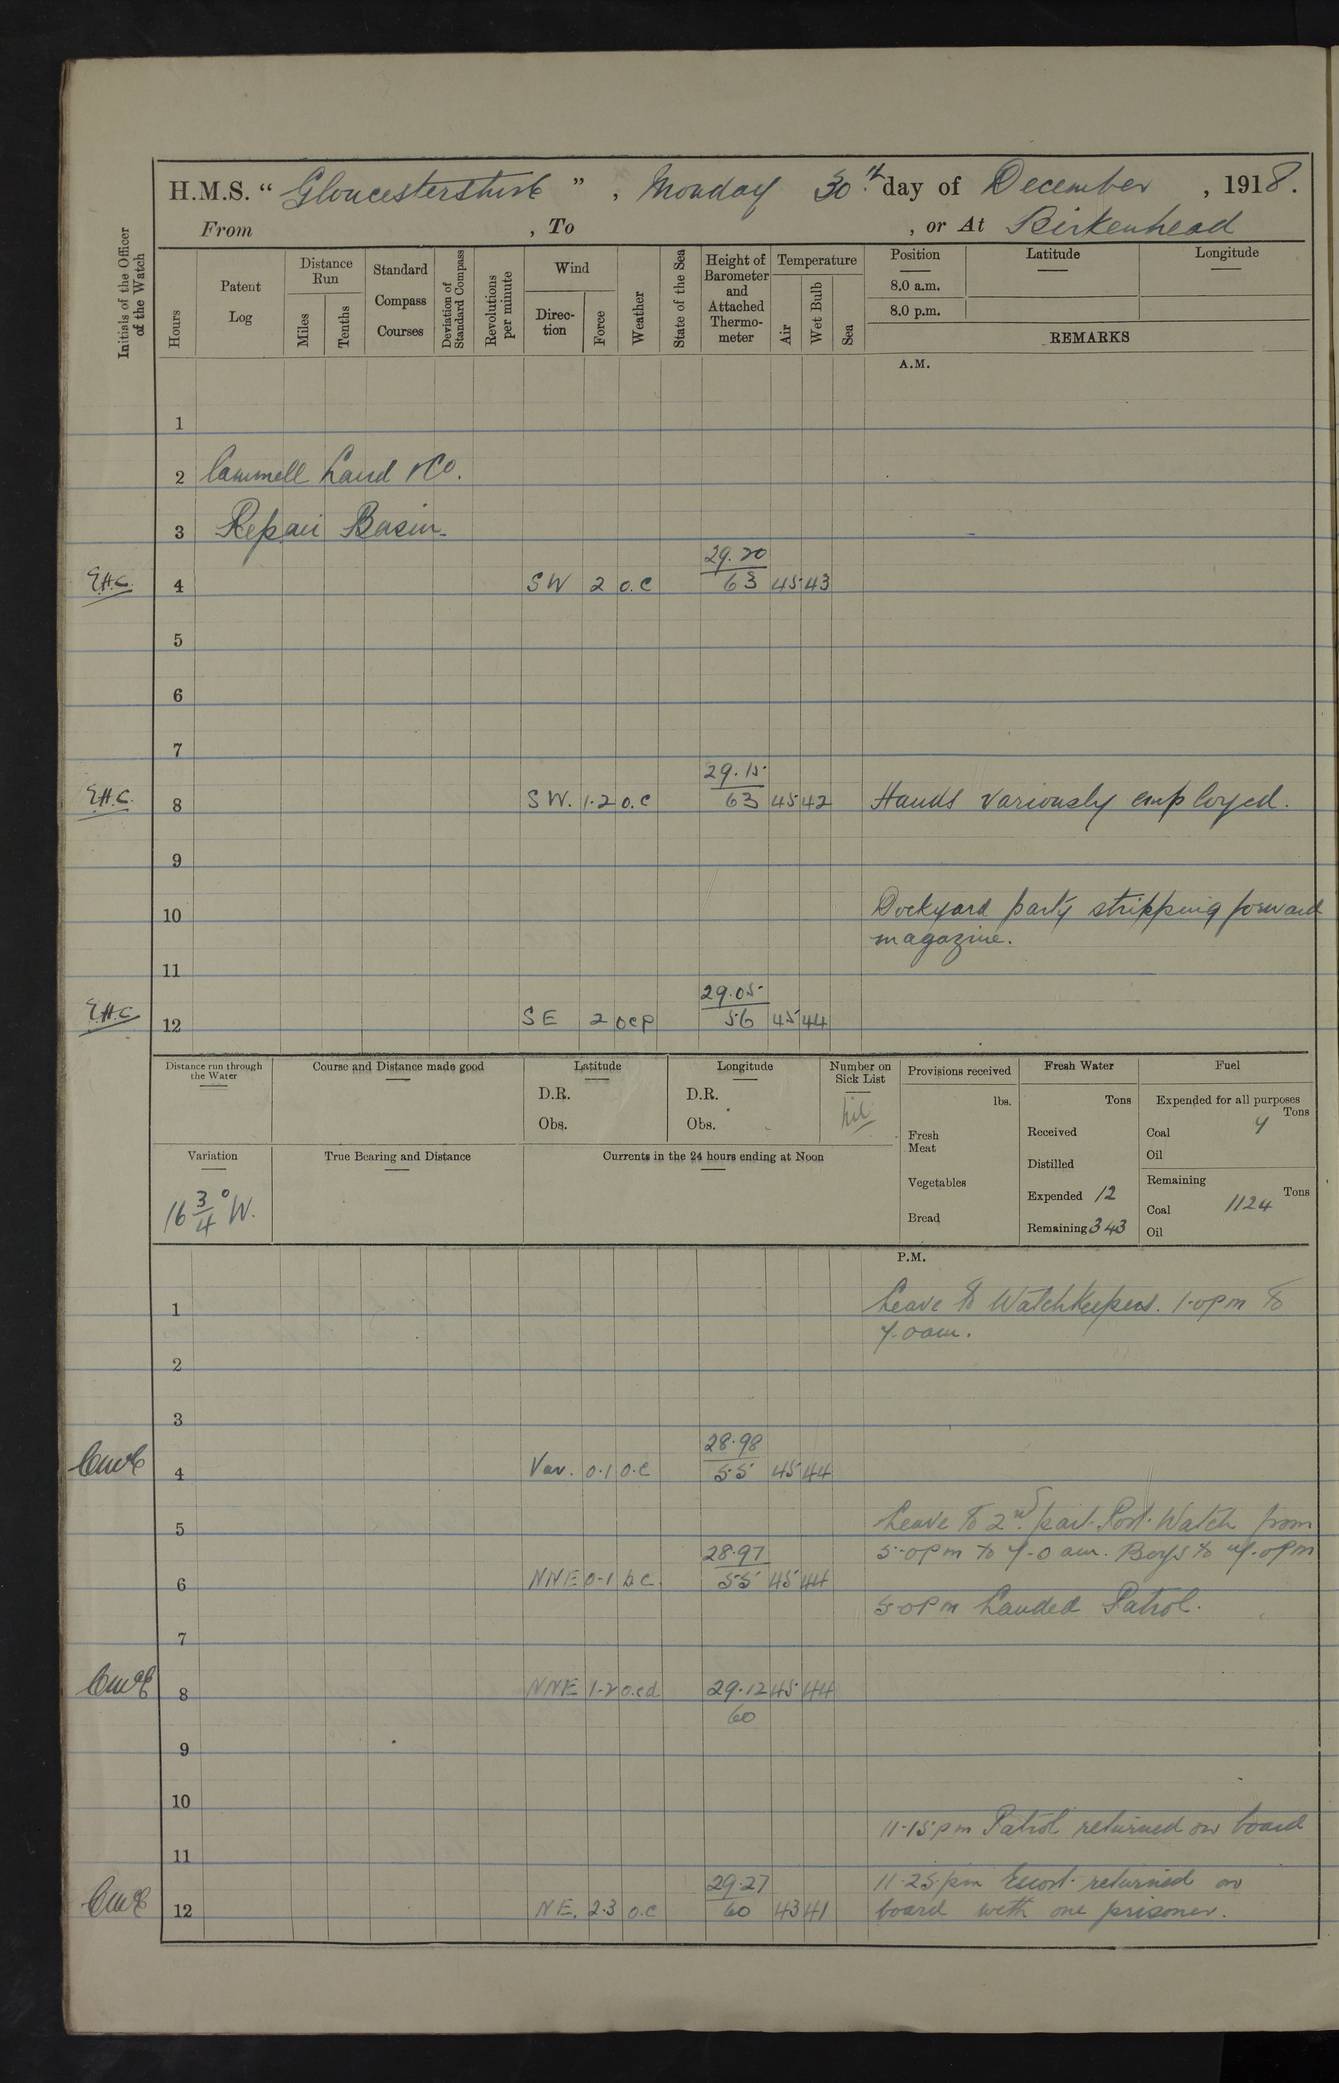 H.M.S. “ Gloucestershire ” , Monday 30th day of December , 1918.
From , To , or At Birkenhead
Initials of the Officer of the Watch
Hours
Patent Log
Distance Run
Miles
Tenths
Standard Compass Courses
Deviation of Standard Compass
Revolutions per minute
Wind
Direc-tion
Force
Weather
State of the Sea
Height of Barometer and Attached Thermo-meter
Temperature
Air
Wet Bulb
Sea
Position Latitude Longitude
8.0 a.m.
8.0 p.m.
REMARKS
A.M.
1
2 Cammell Laird & Co.
3 Repair Basin.
29.20
E.H.C. 4 SW 2 o.c 63 45 43
5
6
7
29.15
E.H.C. 8 SW. 1.2 o.c 63 45 42 Hands variously employed.
9
10 Dockyard party stripping forward
magazine.
11
29.05
E.H.C. 12 SE 2 ocp 56 45 44
Distance run through the Water
Course and Distance made good
Latitude
D.R.
Obs.
Longitude
D.R.
Obs.
Number on Sick List
nil
Provisions received
lbs.
Fresh Meat
Vegetables
Bread
Fresh Water
Tons
Received
Distilled
Expended 12
Remaining 343
Fuel
Expended for all purposes
Tons
Coal 4
Oil
Remaining
Tons
Coal 1124
Oil
Variation
16 3/4° W.
True Bearing and Distance
Currents in the 24 hours ending at Noon
P.M.
1 Leave to Watchkeepers. 1.0pm to
7.0am.
2
3
28.98
4 Var. 0.1 o.c 55 45 44
5 Leave to 2nd part Port Watch from
28.97 5.0pm to 7.0 am. Boys to 9.0pm
6 NNE 0-1 b c 55 45 44
5.0pm Landed Patrol.
7
8 NNE 1-2 o.cd 29.12 45 44
60
9
10
11.15pm Patrol returned on board
11
29.27 11.25pm Escort returned on
12 NE. 2.3 o.c 60 43 41 board with one prisoner.